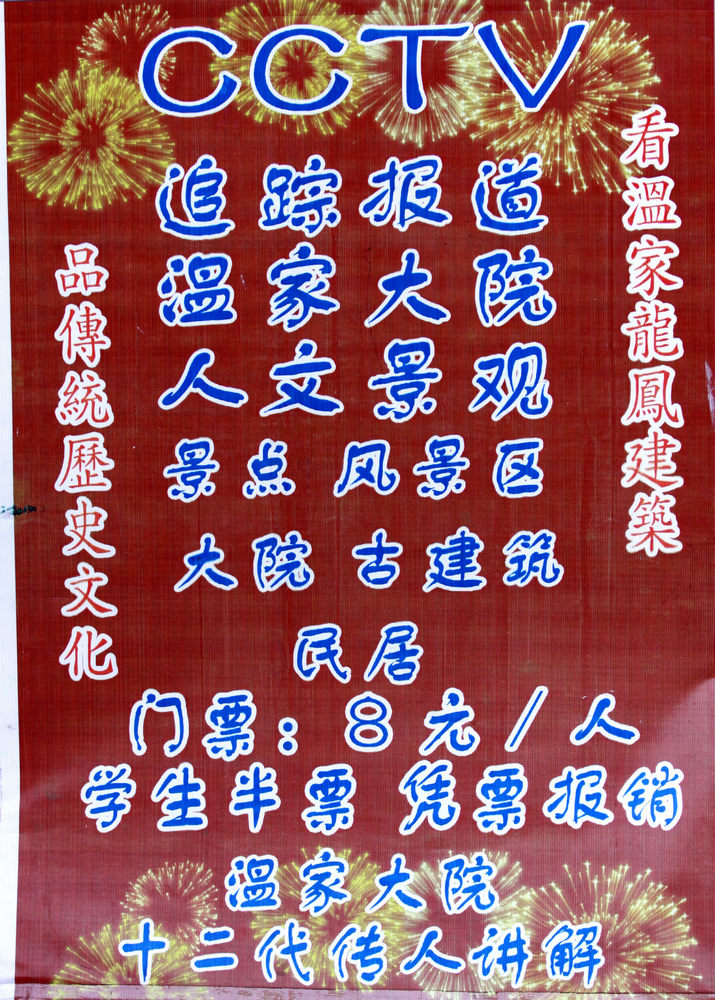 CCTV
追踪报道
温家大院
人文景观
景点 风景区
大院 古建筑
民居
门票：8元/人
学生半票 凭票报销
温家大院
十二代传人讲解
看溫家龍鳳建築
品傳統歷史文化